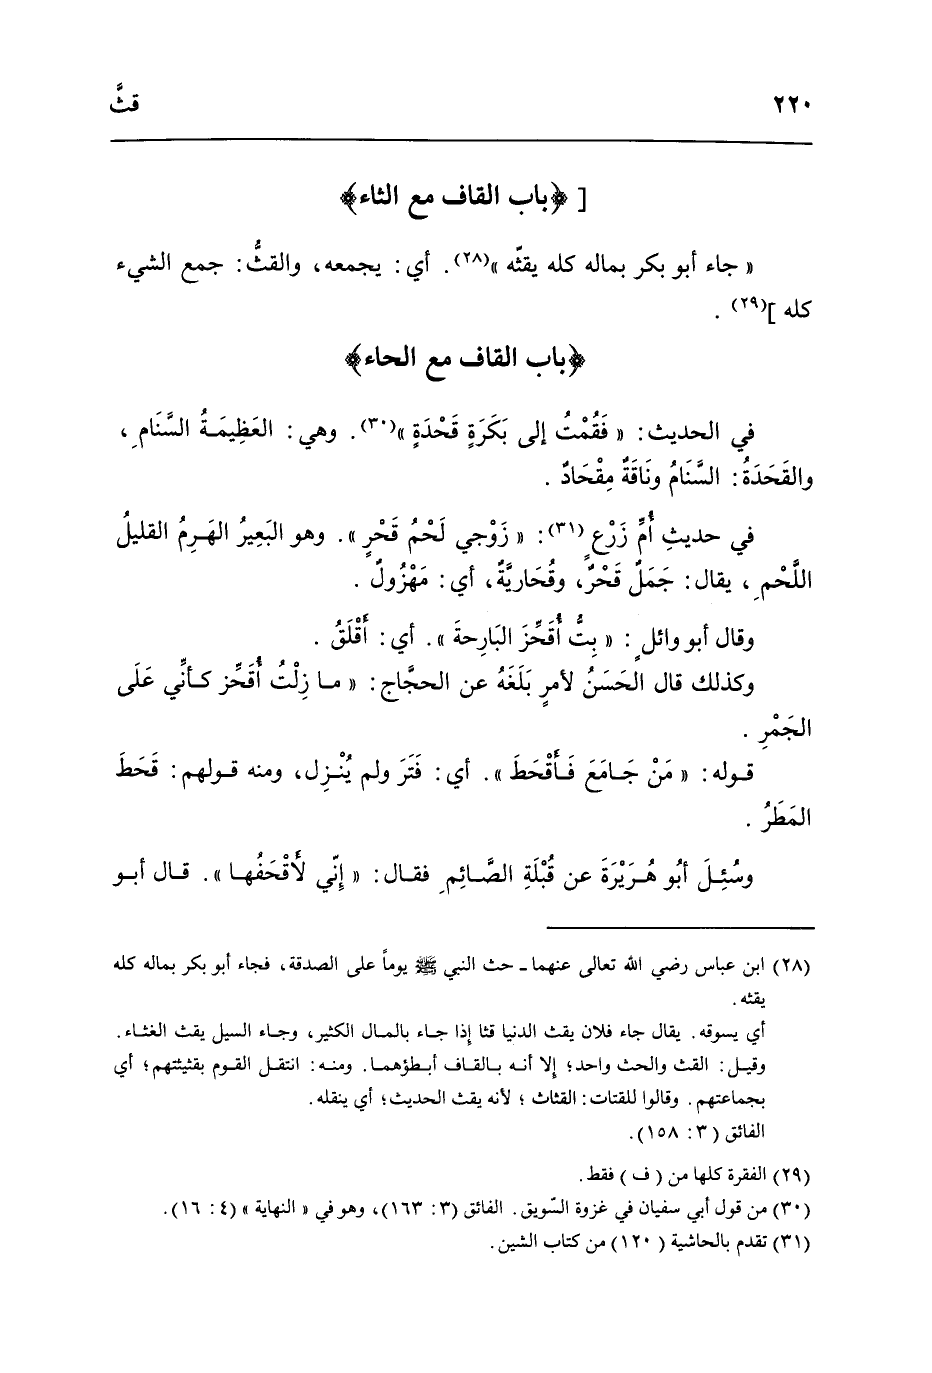 ٢٢٠ قثَّ
[ ﴿باب القاف مع الثاء﴾
« جاء أبو بكر بماله كله يقثّه »(٢٨). أي: يجمعه، والقثُّ: جمع الشيء
كله ](٢٩) .
﴿باب القاف مع الحاء﴾
في الحديث: « فَقُمْتُ إلى بَكَرَةٍ قَحْدَةٍ »(٣٠). وهي: العَظِيمَةُ السَّنَامِ ،
والقَحَدَةُ: السَّنَامُ ونَاقَةٌ مِقْحَادٌ .
في حديثِ أُمِّ زَرْعٍ (٣١): « زَوْجي لَحْمُ قَحْرٍ ». وهو البَعِيرُ الهَرِمُ القليلُ
اللَّحْمِ ، يقال: جَمَلٌ قَحْرٌ، وقُحَاريَّةٌ، أي: مَهْزُولٌ .
وقال أبو وائلٍ : « بِتُّ أُقَحِّزَ البَارِحةَ ». أي: أَقْلَقُ .
وكذلك قال الحَسَنُ لأمرٍ بَلَغَهُ عن الحجَّاج: « ما زِلْتُ أُقَحِّز كأنِّي عَلَى
الجَمْرِ .
قوله: « مَنْ جَامَعَ فَأَقْحَطَ ». أي: فَتَرَ ولم يُنْزِل، ومنه قولهم: قَحَطَ
المَطَرُ .
وسُئِلَ أبُو هُرَيْرَةَ عن قُبْلَةِ الصَّائِمِ فقال: « إنّي لأَقْحَفُها ». قال أبو
(٢٨) ابن عباس رضي الله تعالى عنهما ـ حث النبي ﷺ يوماً على الصدقة، فجاء أبو بكر بماله كله
يقثه .
أي يسوقه. يقال جاء فلان يقث الدنيا قثا إذا جاء بالمال الكثير، وجاء السيل يقث الغثاء.
وقيل: القث والحث واحد؛ إلا أنه بالقاف أبطؤهما. ومنه: انتقل القوم بقثيثتهم؛ أي
بجماعتهم. وقالوا للقتات: القثاث ؛ لأنه يقث الحديث؛ أي ينقله.
الفائق ( ٣: ١٥٨).
(٢٩) الفقرة كلها من ( ف ) فقط.
(٣٠) من قول أبي سفيان في غزوة السّويق. الفائق (٣: ١٦٣)، وهو في « النهاية » (٤: ١٦).
(٣١) تقدم بالحاشية ( ١٢٠) من كتاب الشين.